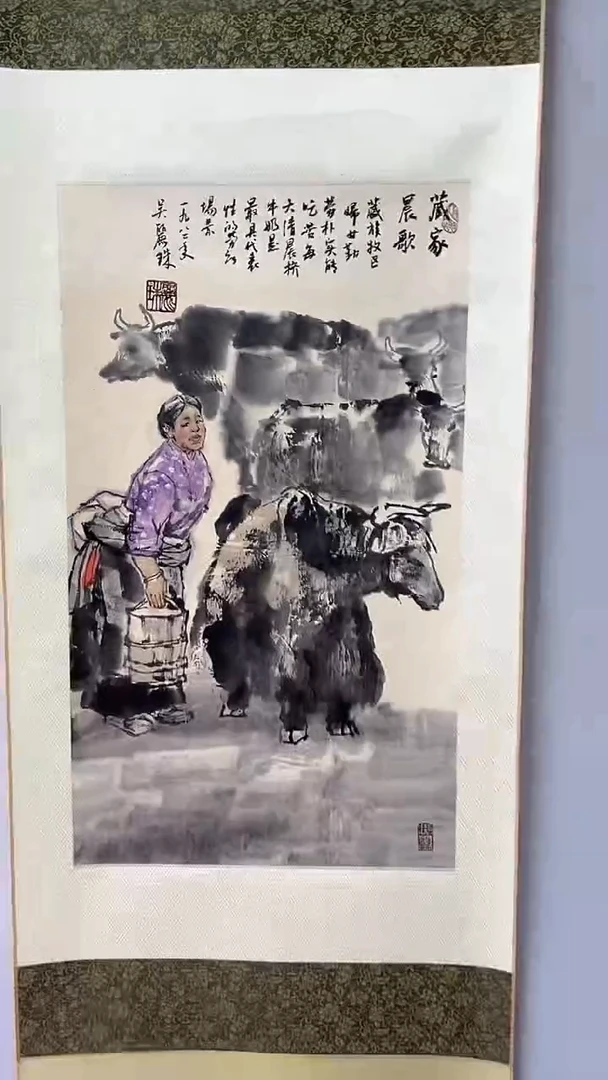 藏家
晨歌
藏族牧区
妇女勤
劳朴实能
吃苦每
大清晨挤
牛奶是
最具代表
性的劳动
场景
一九八二年
吴丽珠